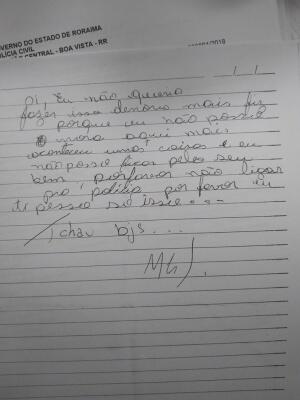 VERNO DO ESTADO DE RORAIMA
LÍCIA CIVIL
CENTRAL - BOA VISTA - RR
/2018
/ /
Oi, Eu não queria
fazer isso demoro mais fiz
porque eu não posso
mora aqui mais
aconteceu umas coisas e eu
não posso ficar pelo seu
bem porfavor não ligar
pro polícia por favor eu
ti pesso só isso...
Tchau bjs...